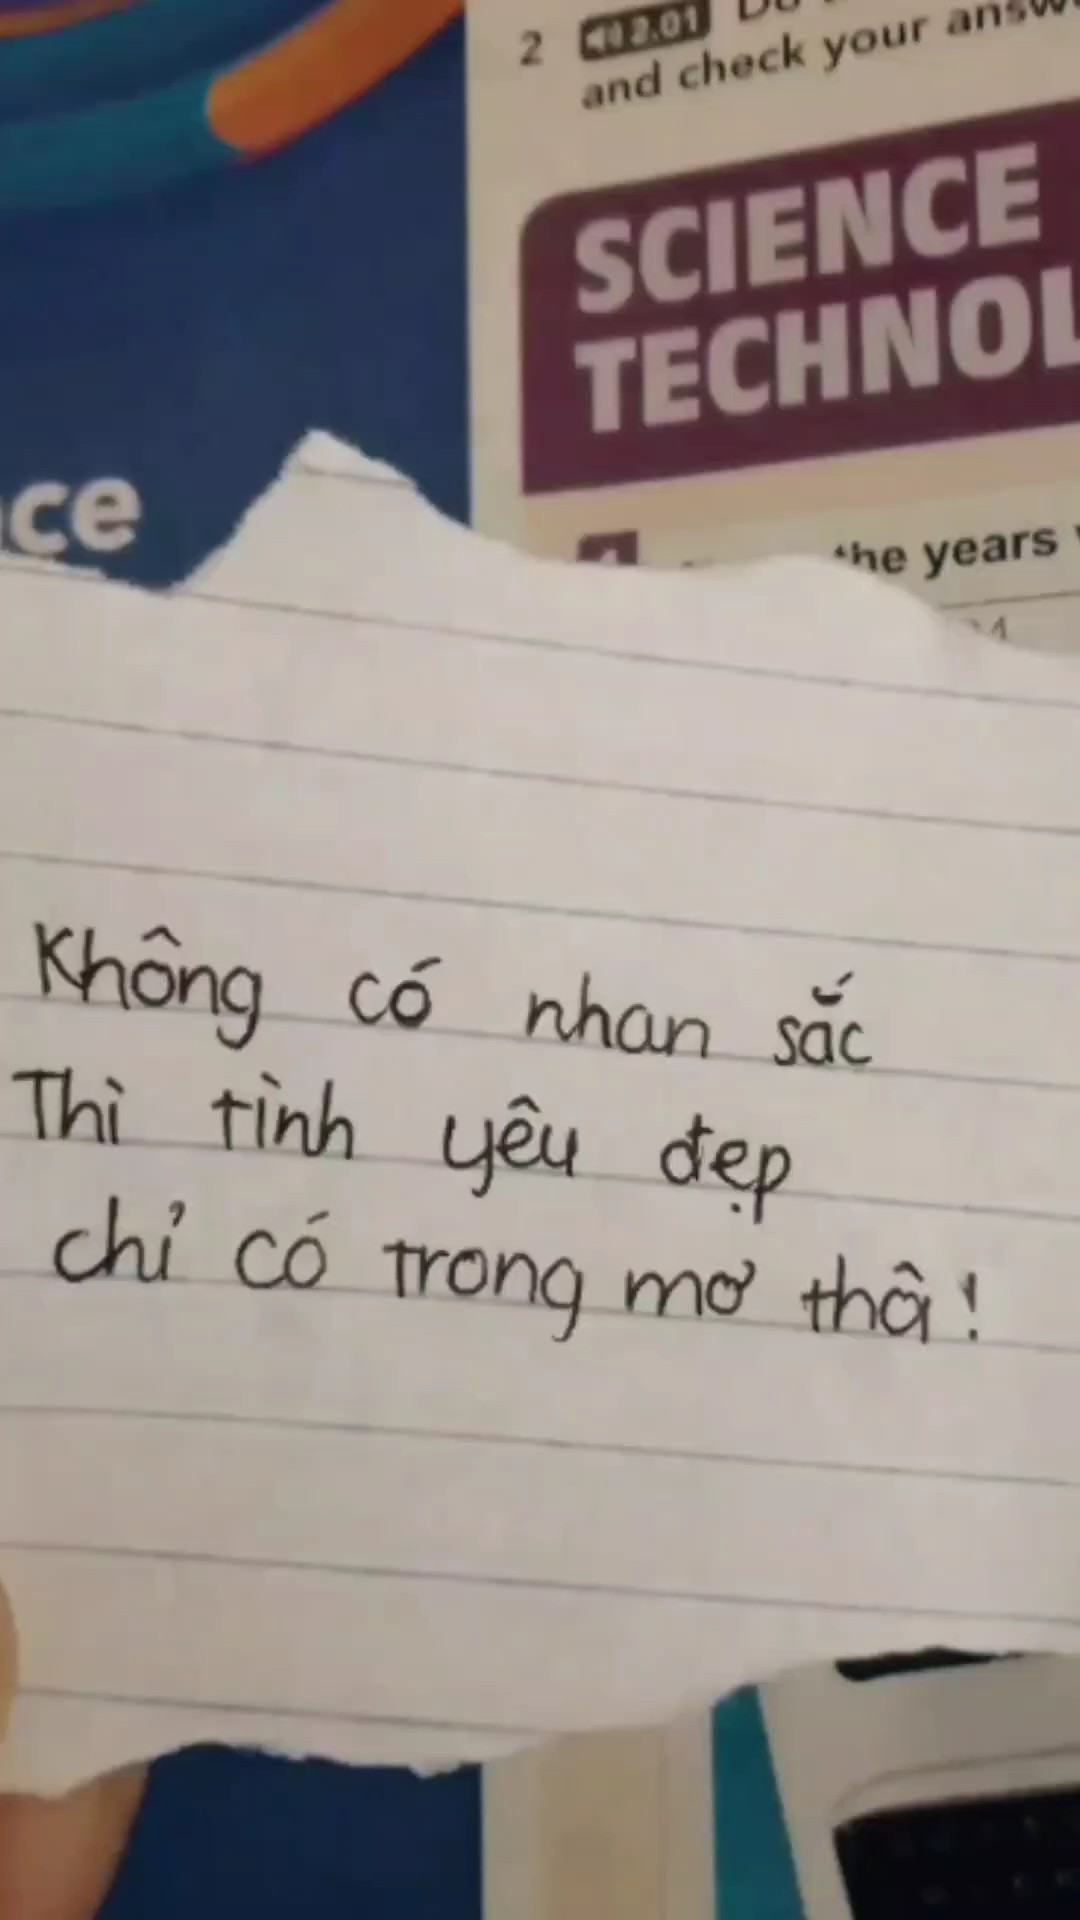 2 2.01
and check your
SCIENCE
ce
the years
Không có nhan sắc
Thì tình yêu đẹp
chỉ có trong mơ thôi!